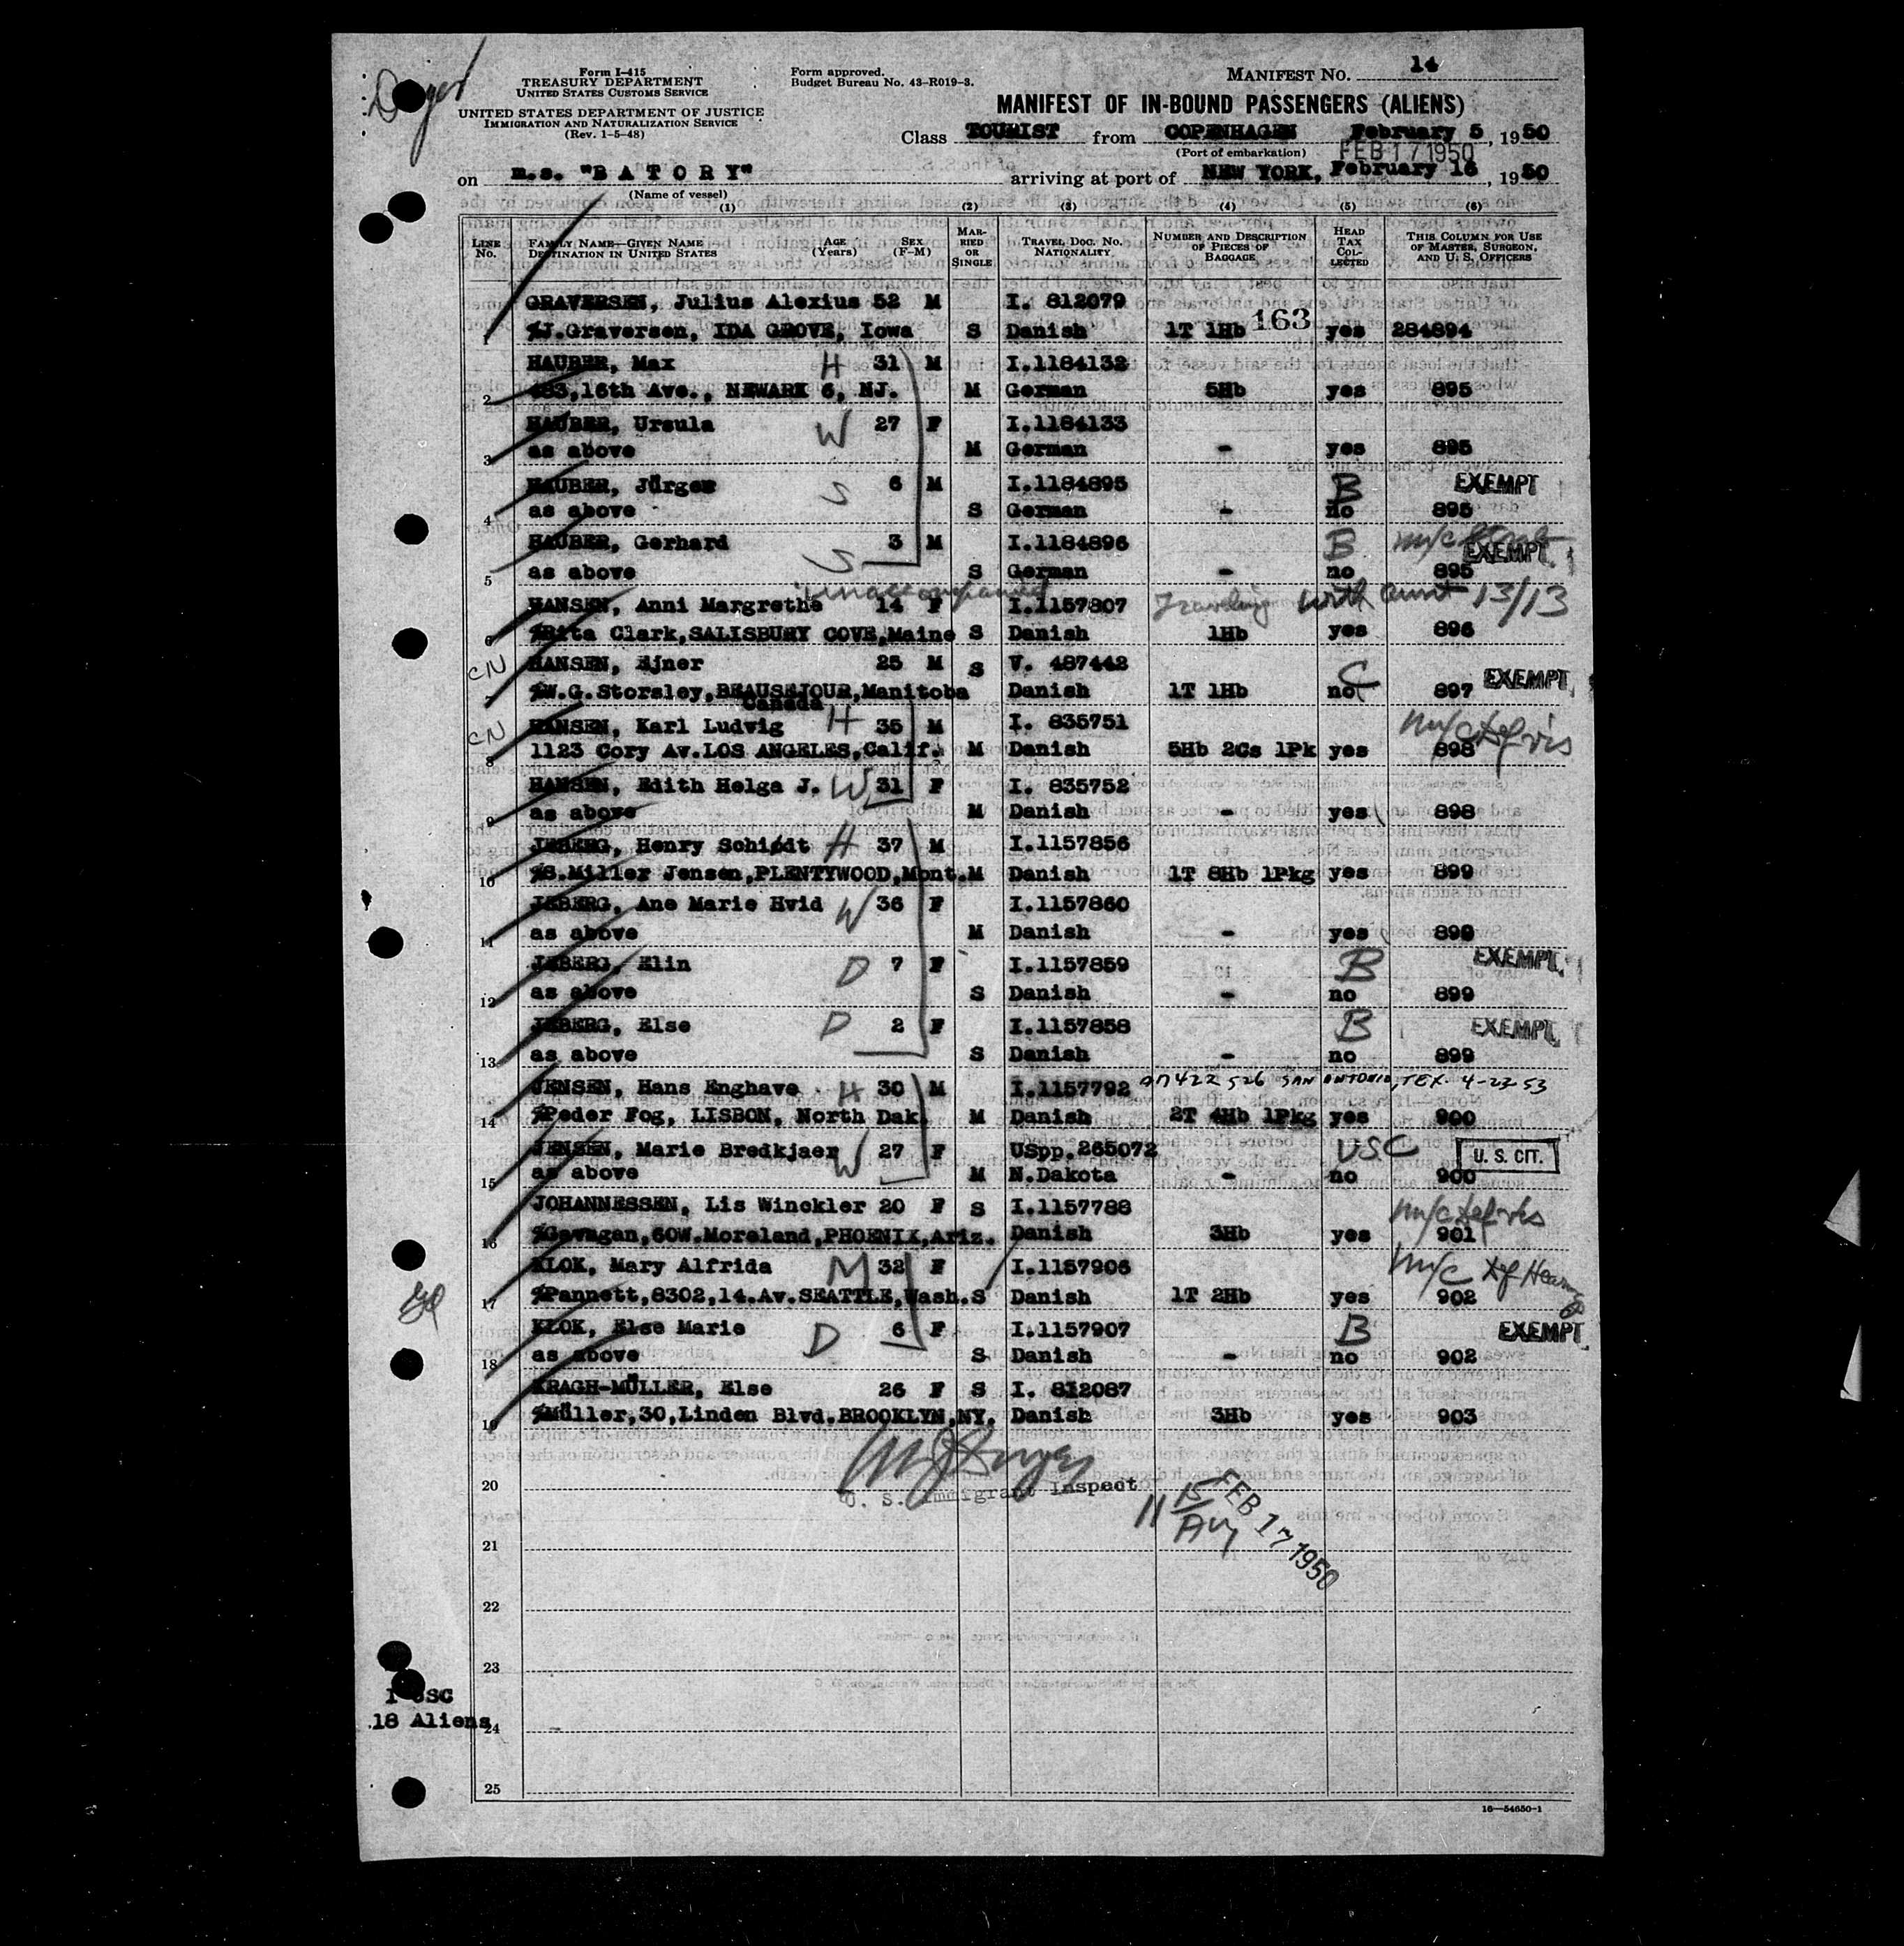 Form I-415
TREASURY DEPARTMENT
UNITED STATES CUSTOMS SERVICE
UNITED STATES DEPARTMENT OF JUSTICE
IMMIGRATION AND NATURALIZATION SERVICE
(Rev. 1-5-48)
Form approved.
Budget Bureau No. 43-R019-3.
MANIFEST NO. 14
MANIFEST OF IN-BOUND PASSENGERS (ALIENS)
Class TOURIST from COPENHAGEN February 5, 1950
(Port of embarkation) FEB 17 1950
on m.s. "B A T O R Y" arriving at port of NEW YORK, February 16, 1950
(Name of vessel)
(1) (2) (3) (4) (5) (6)
LINE No. FAMILY NAME—GIVEN NAME DESTINATION IN UNITED STATES AGE (Years) SEX (F-M) MARRIED OR SINGLE TRAVEL DOC. NO. NATIONALITY NUMBER AND DESCRIPTION OF PIECES OF BAGGAGE HEAD TAX COLLECTED THIS COLUMN FOR USE OF MASTER, SURGEON, AND U. S. OFFICERS
GRAVERSEN, Julius Alexius 52 M I. 812079
1 %J.Graversen, IDA GROVE, Iowa S Danish 1T 1Hb 163 yes 284894
HAUBER, Max H 31 M I.1184132
2 483,16th Ave., NEWARK 6, NJ. M German 5Hb yes 895
HAUBER, Ursula W 27 F I.1184133
3 as above M German - yes 895
HAUBER, Jürgen S 6 M I.1184895 B EXEMPT
4 as above S German - no 895
HAUBER, Gerhard S 3 M I.1184896 B m/c EXEMPT
5 as above S German - no 895
unaccompanied
HANSEN, Anni Margrethe 14 F I.1157807 Traveling with aunt 13/13
6 %Rita Clark,SALISBURY COVE,Maine S Danish 1Hb yes 896
CN HANSEN, Ejner 25 M S V. 487442 C EXEMPT
7 %W.G.Storsley,BEAUSEJOUR,Manitoba Danish 1T 1Hb no 897
Canada
CN HANSEN, Karl Ludvig H 35 M I. 835751 m/c
8 1123 Cory Av.LOS ANGELES,Calif. M Danish 5Hb 2Cs 1Pk yes 898
HANSEN, Edith Helga J. W 31 F I. 835752
9 as above M Danish - yes 898
JEBERG, Henry Schiødt H 37 M I.1157856
10 %S.Miller Jensen,PLENTYWOOD,Mont. M Danish 1T 8Hb 1Pkg yes 899
JEBERG, Ane Marie Hvid W 36 F I.1157860
11 as above M Danish - yes 899
JEBERG, Elin D 7 F I.1157859 B EXEMPT
12 as above S Danish - no 899
JEBERG, Else D 2 F I.1157858 B EXEMPT
13 as above S Danish - no 899
JENSEN, Hans Enghave H 30 M I.1157792 422 526 SAN ANTONIO, TEX. 4-23-53
14 %Peder Fog, LISBON, North Dak. M Danish 2T 4Hb 1Pkg yes 900
JENSEN, Marie Bredkjaer W 27 F USpp.265072 USC U. S. CIT.
15 as above M N.Dakota - no 900
JOHANNESSEN, Lis Winckler 20 F S I.1157788 m/c
16 %Gavagan,60W.Moreland,PHOENIX,Ariz. Danish 3Hb yes 901
KLOK, Mary Alfrida M 32 F I.1157906 m/c
17 %Pannett,8302,14.Av.SEATTLE,Wash. S Danish 1T 2Hb yes 902
KLOK, Else Marie D 6 F I.1157907 B EXEMPT
18 as above S Danish - no 902
KRAGH-MÜLLER, Else 26 F S I. 812087
19 %Müller,30,Linden Blvd.BROOKLYN,NY. Danish 3Hb yes 903
U. S. Immigrant Inspect
20
11 15 AM FEB 17 1950
21
22
23
1 USC
18 Aliens
24
25
16—54650-1